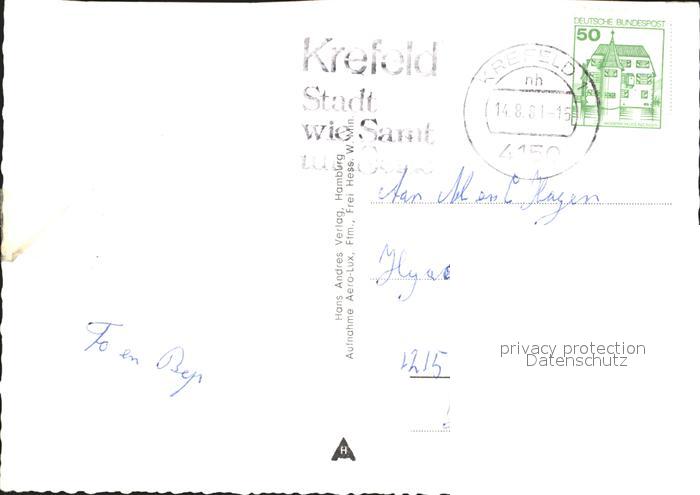 Krefeld
Stadt
wie Samt
und Seide
DEUTSCHE BUNDESPOST
50
KREFELD 1
nh
14.8.81-15
4150
Hans Andres Verlag, Hamburg
Aufnahme Aero-Lux, Ffm., Frei Hess. W. Min.
Aan
Hagen
To en Bep
privacy protection
Datenschutz
H